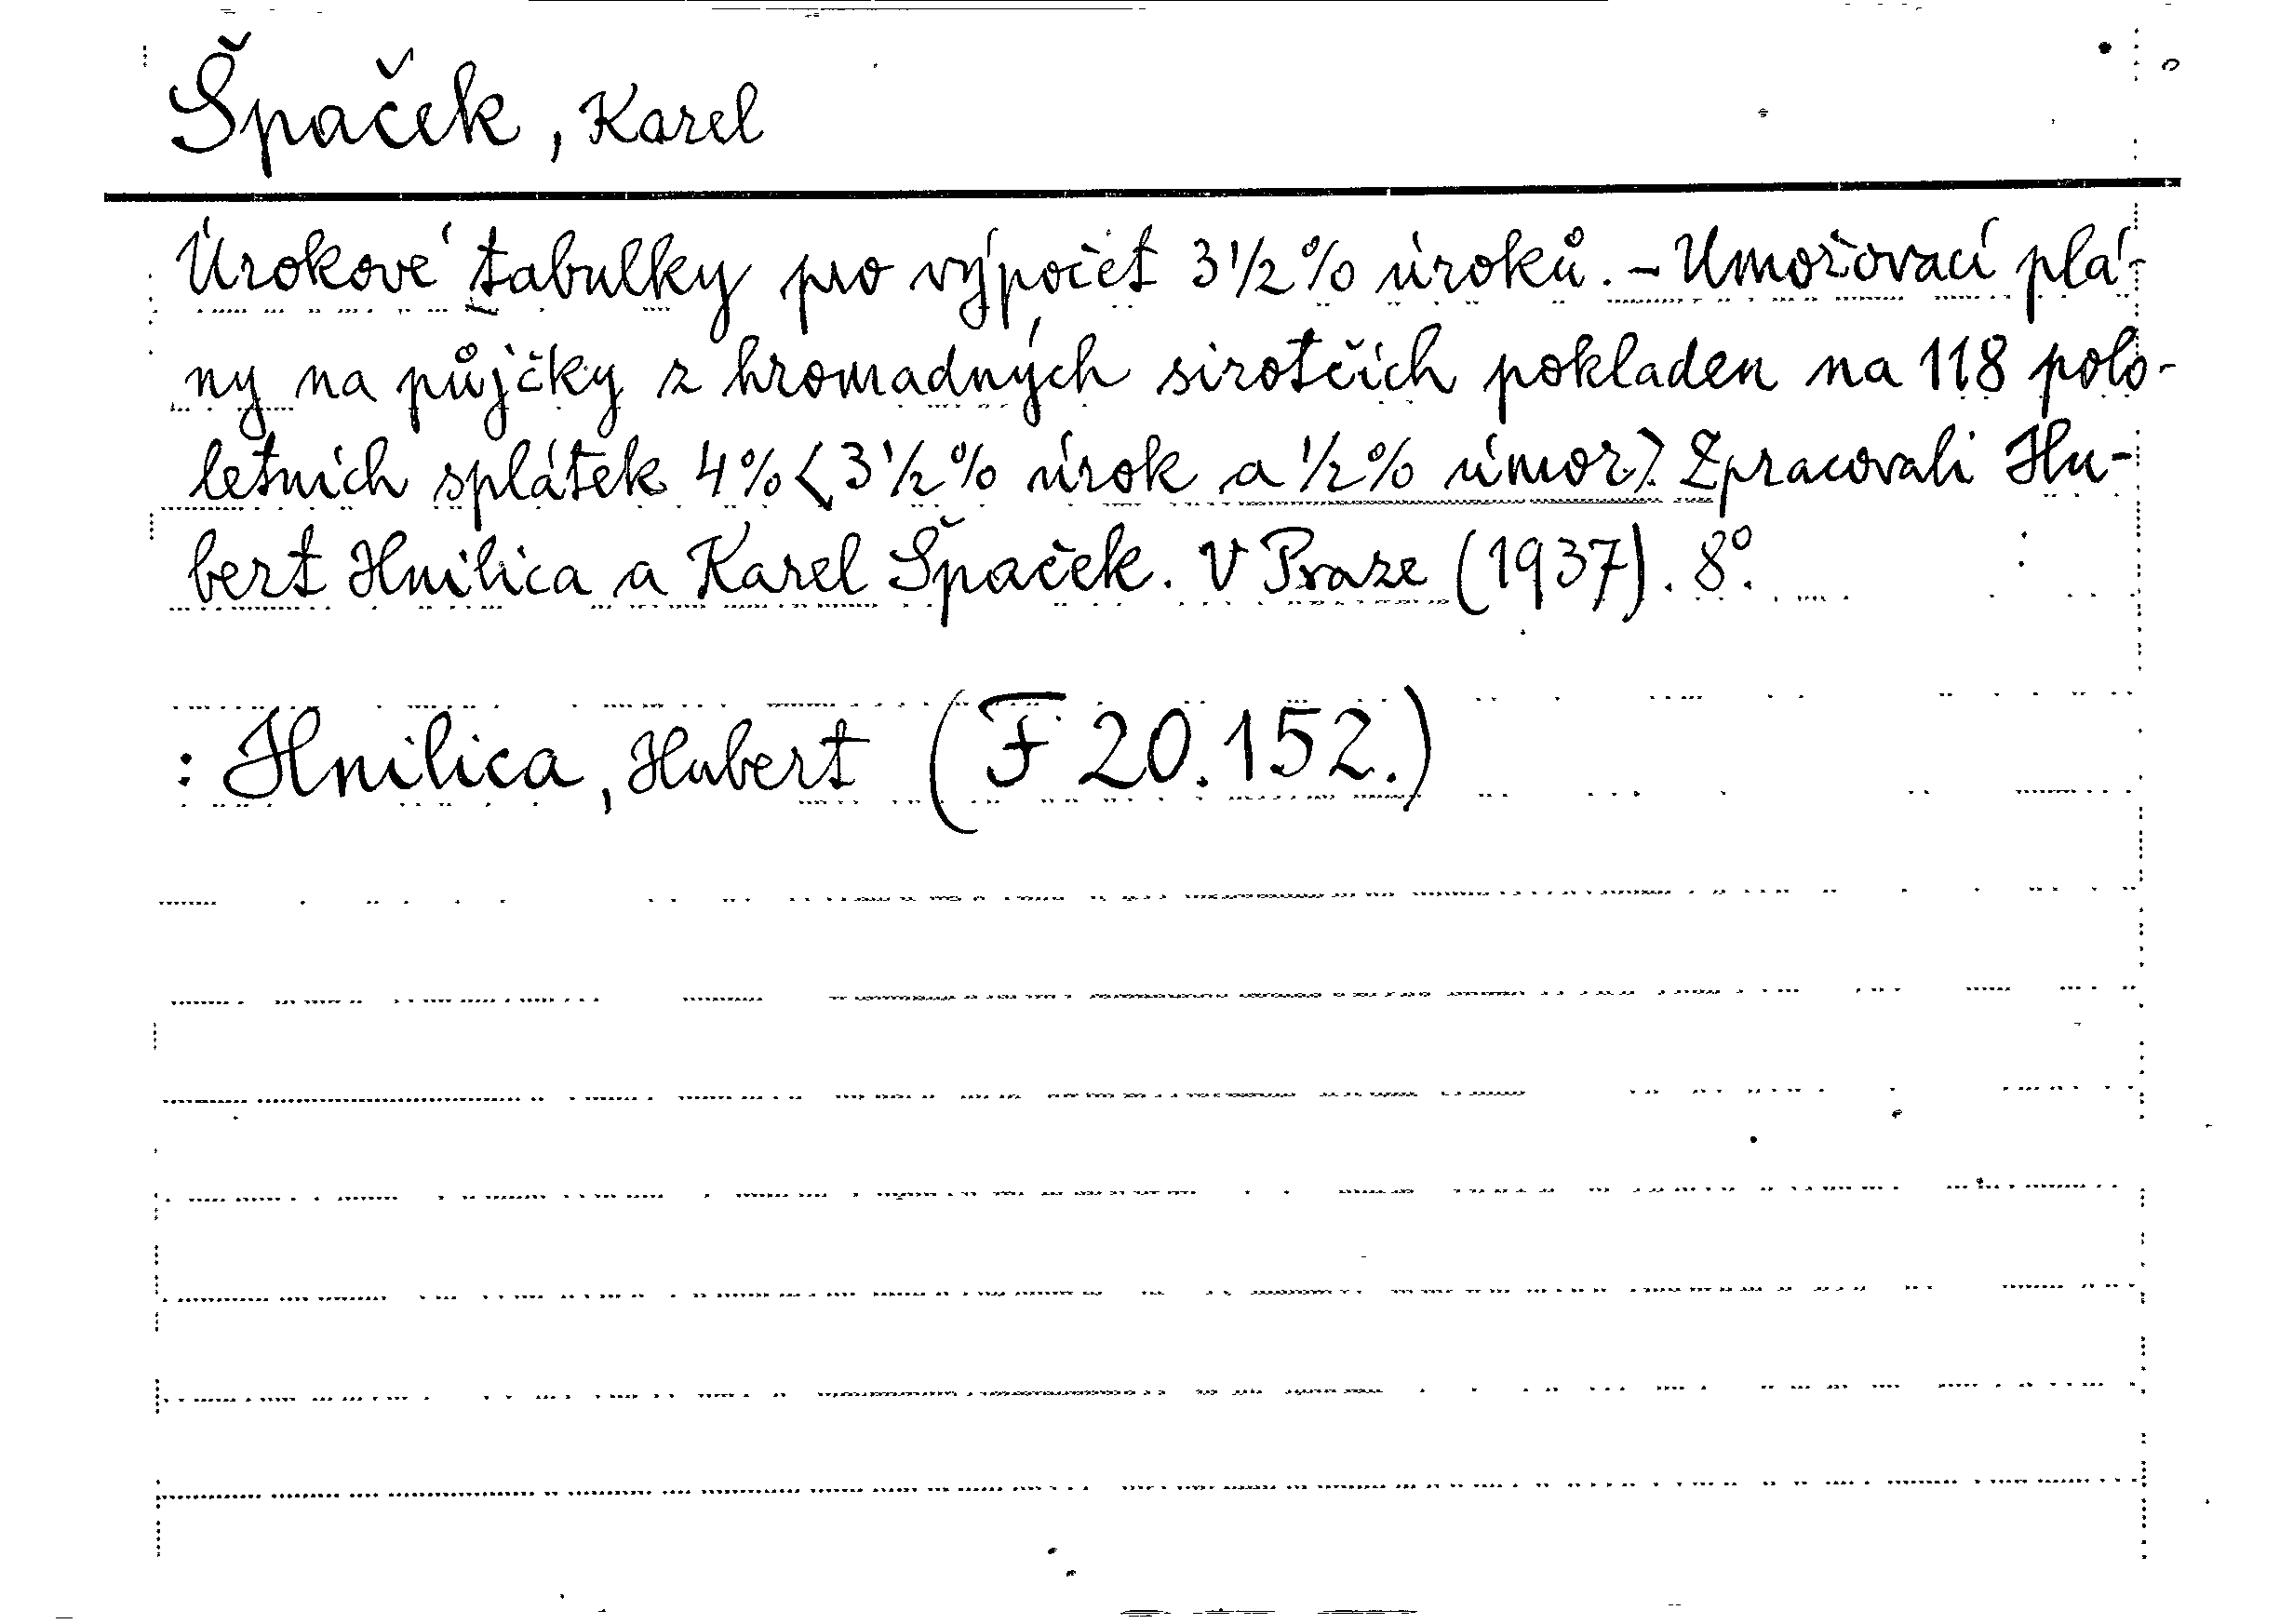 Špaček, Karel
Úrokové tabulky pro výpočet 3 1/2 % úroků. - Umořovací plá-
ny na půjčky z hromadných sirotčích pokladen na 118 polo-
letních splátek 4% <3 1/2 % úrok a 1/2 % úmor.> Zpracovali Hu-
bert Hnilica a Karel Špaček. V Praze (1937). 8°.
: Hnilica, Hubert (F 20.152.)